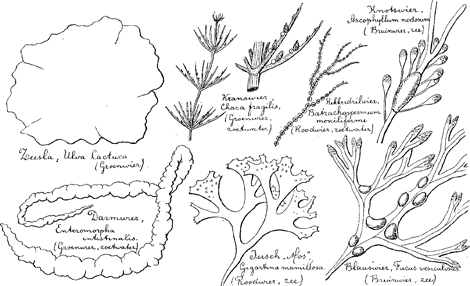 Zeesla, Ulva Lactuca
(Groenwier).
Kranswier,
Chara fragilis,
(Groenwier,
zoetwater)
Kikkerdrilwier,
Batrachospermum
moniliforme
(Roodwier, zoetwater)
Knotswier,
Ascophyllum nodosum
(Bruinwier, zee)
Darmwier,
Enteromorpha
intestinalis.
(Groenwier, zoetwater)
Iersch „Mos”,
Gigartina mamillosa.
(Roodwier, zee)
Blaaswier, Fucus vesiculosus
(Bruinwier, zee)